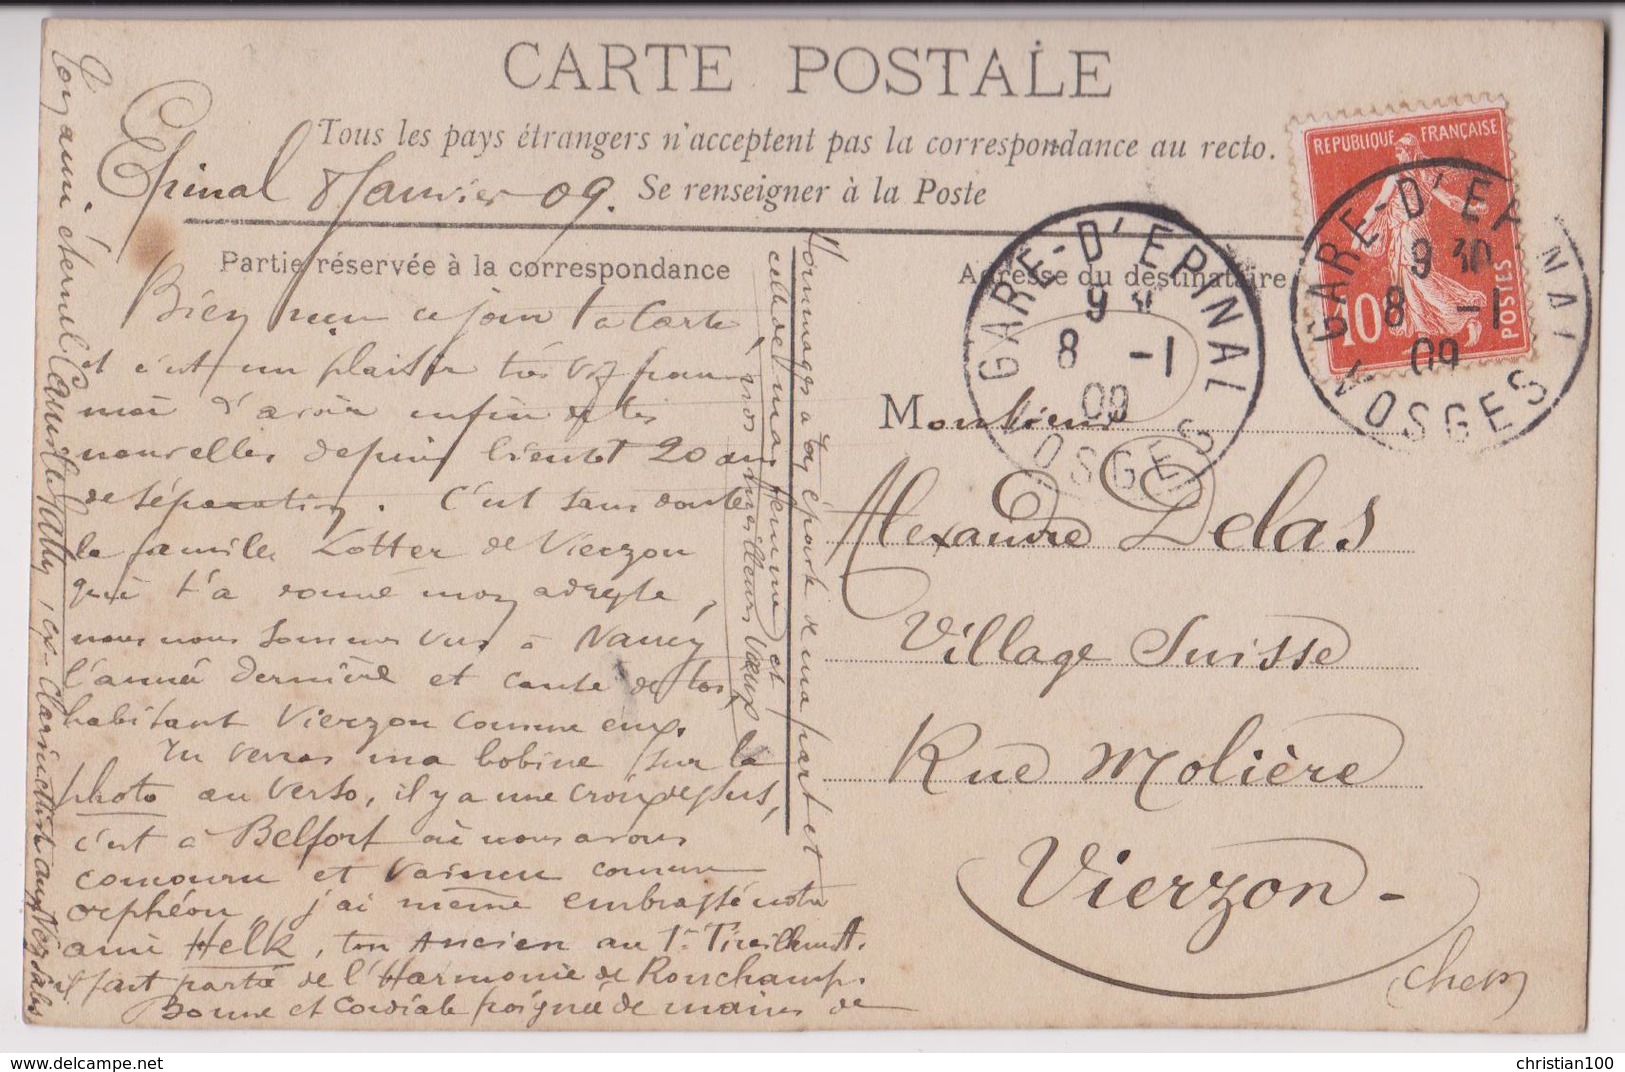 CARTE POSTALE
Tous les pays étrangers n'acceptent pas la correspondance au recto.
Se renseigner à la Poste
Epinal 8 Janvier 09.
Partie réservée à la correspondance
Adresse du destinataire
Bien reçu ce jour ta carte
et c'est un plaisir très vif pour
moi d'avoir enfin de tes
nouvelles depuis bientôt 20 ans
de séparation. C'est sans doute
la famille Lotter de Vierzon
qui t'a donné mon adresse,
nous nous sommes vus à Nancy
l'année dernière et causé de toi,
habitant Vierzon comme eux.
Tu verras ma bobine sur la
photo au verso, il y a une croix dessus,
c'est à Belfort où nous avons
concouru et vaincu comme
orphéon, j'ai même embrassé notre
ami Helk, ton Ancien au 1r Tirailleurs.
il fait partie de l'Harmonie de Ronchamp.
Bonne et cordiale poignée de mains de
ton ami éternel
Hommages à ton épouse de ma part et
celle de ma femme et
nos meilleurs vœux
Monsieur
Alexandre Delas
Village Suisse
Rue Molière
Vierzon -
(Cher)
REPUBLIQUE FRANÇAISE
10c
POSTES
GARE-D'EPINAL
9 30
8 -1
09
VOSGES
GARE-D'EPINAL
9 3
8 -1
09
VOSGES
www.delcampe.net
christian100